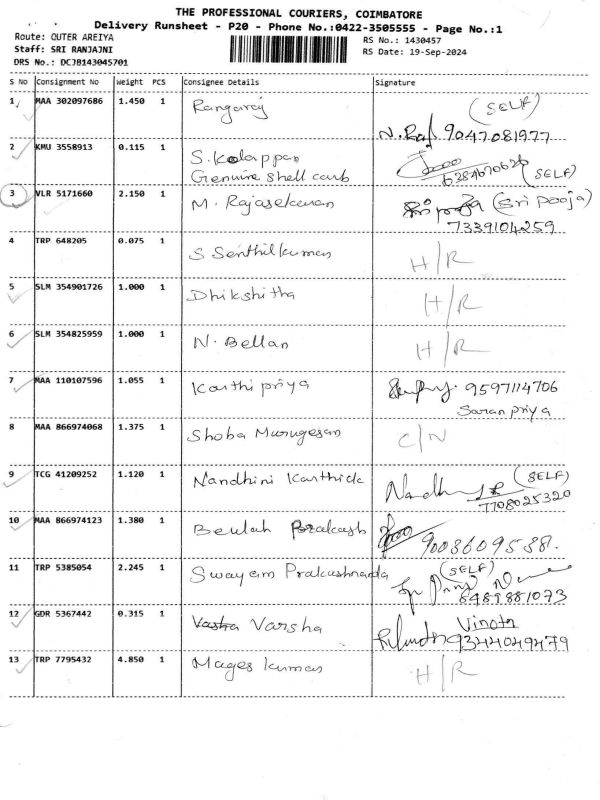 THE PROFESSIONAL COURIERS, COIMBATORE
Delivery Runsheet - P20 - Phone No.:0422-3505555 - Page No.:1
Route: OUTER AREIYA
RS No.: 1430457
Staff: SRI RANJAJNI
RS Date: 19-Sep-2024
DRS No.: DCJB143045701
S No Consignment No Weight PCS Consignee Details Signature
1 MAA 302097686 1.450 1 Rangaraj (SELF)
N. Raj 9047081977
2 KMU 3558913 0.115 1 S. Kolappan
Genuine Shell carb (SELF)
3 VLR 5171660 2.150 1 M. Rajasekaran (Sri pooja)
7339104259
4 TRP 648205 0.075 1 S Senthilkumar H/R
5 SLM 354901726 1.000 1 Dhikshitha H/R
6 SLM 354825959 1.000 1 N. Bellan H/R
7 MAA 110107596 1.055 1 Karthi priya 9597114706
Saran priya
8 MAA 866974068 1.375 1 Shoba Murugesan C/N
9 TCG 41209252 1.120 1 Nandhini Karthick (SELF)
7708025320
10 MAA 866974123 1.380 1 Beulah Prakash 9003609588.
11 TRP 5385054 2.245 1 Swayem Prakashnanda (SELF)
8489881073
12 GDR 5367442 0.315 1 Varsha Vinoth
9344049479
13 TRP 7795432 4.850 1 Mages kumar H/R